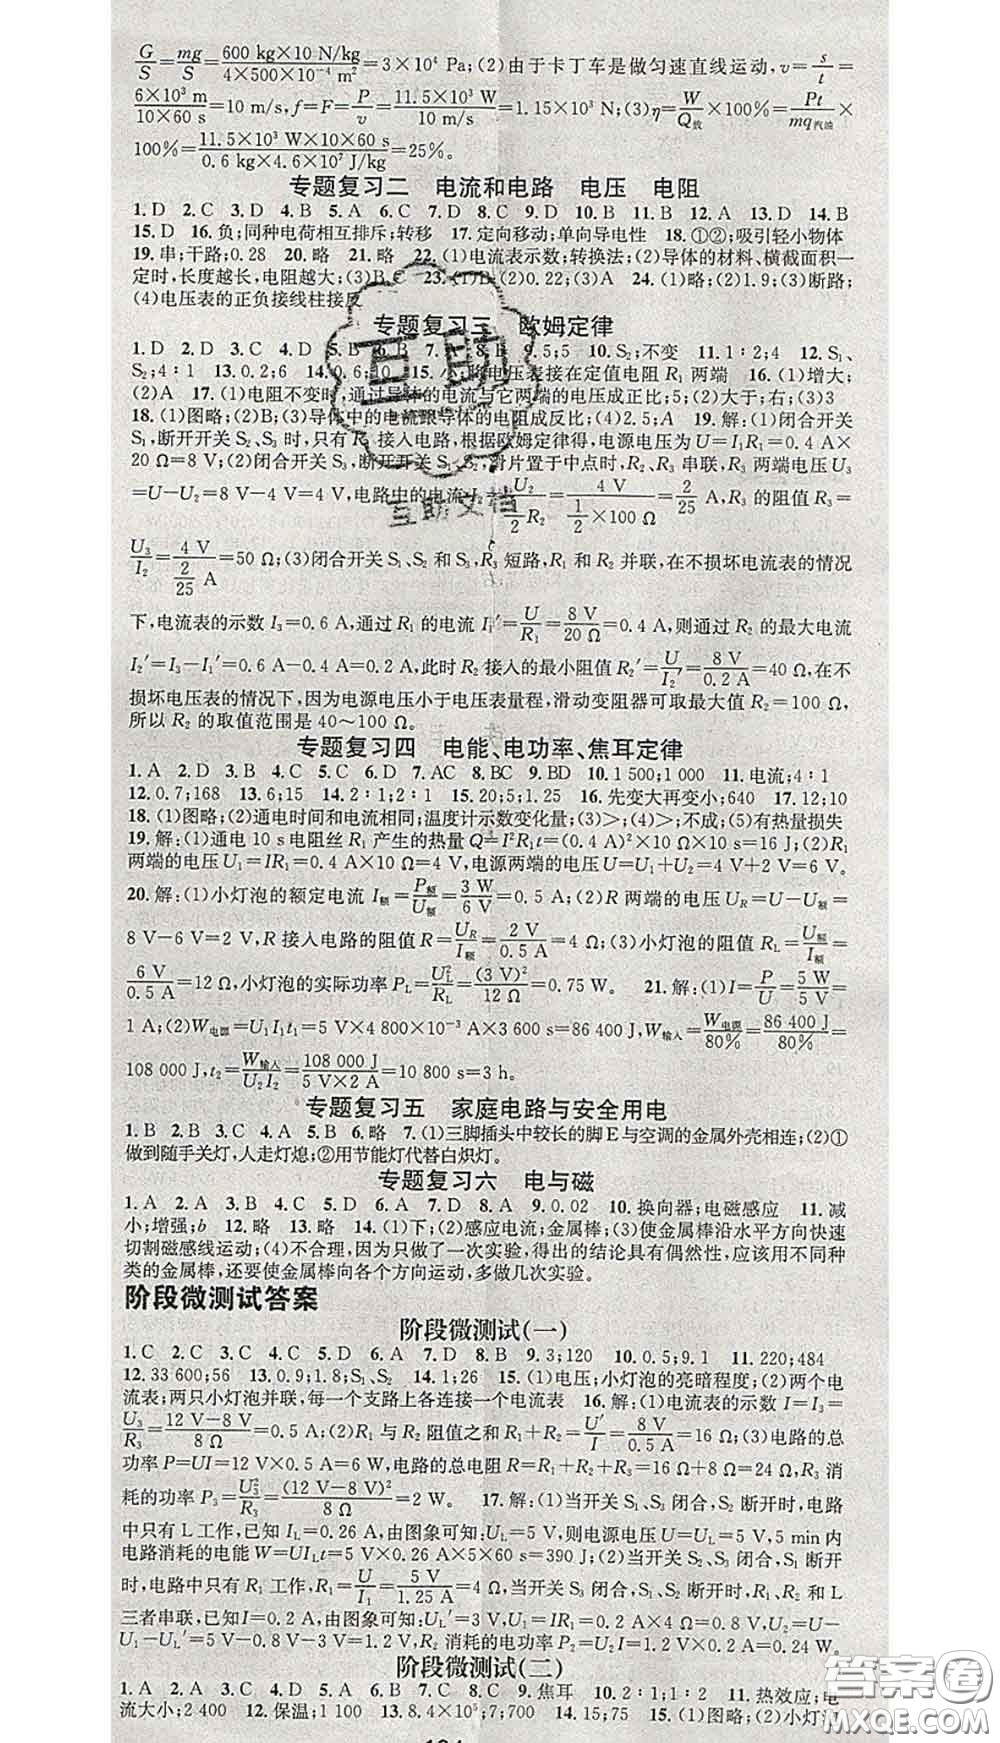 G/S=mg/S=600 kg×10 N/kg / 4×500×10⁻⁴ m²=3×10⁴ Pa;(2)由于卡丁车是做匀速直线运动,v=s/t=
6×10³ m / 10×60 s=10 m/s,f=F=P/v=11.5×10³ W / 10 m/s=1.15×10³ N;(3)η=W/Q放×100%=Pt/mq汽油×
100%=11.5×10³ W×10×60 s / 0.6 kg×4.6×10⁷ J/kg=25%。
专题复习二 电流和电路 电压 电阻
1. D 2. C 3. D 4. B 5. A 6. C 7. D 8. C 9. D 10. B 11. B 12. A 13. D 14. B
15. D 16. 负;同种电荷相互排斥;转移 17. 定向移动;单向导电性 18. ①②;吸引轻小物体
19. 串;干路;0.28 20. 略 21. 略 22. (1)电流表示数;转换法;(2)导体的材料、横截面积一
定时,长度越长,电阻越大;(3)B、C 23. (1)B;(2)0.22;(3)A 24. (1)略;(2)1.9;(3)断路;
(4)电压表的正负接线柱接反
专题复习三 欧姆定律
1. D 2. D 3. C 4. D 5. B 6. B 7. 8. B 9. 5;5 10. S₂;不变 11. 1∶2;4 12. S₁、
S₂;4∶1 13. 0.2;6 14. 0.6;10 15. 小;将电压表接在定值电阻 R₁ 两端 16. (1)增大;
(2)A 17. (1)电阻不变时,通过导体的电流与它两端的电压成正比;5;(2)大于;右;(3)3
18. (1)图略;(2)B;(3)导体中的电流跟导体的电阻成反比;(4)2.5;A 19. 解:(1)闭合开关
S₁,断开开关 S₂、S₃ 时,只有 R₁ 接入电路,根据欧姆定律得,电源电压为 U=I₁R₁=0.4 A×
20 Ω=8 V;(2)闭合开关 S₃,断开开关 S₁、S₂,滑片置于中点时,R₂、R₃ 串联,R₃ 两端电压 U₃
=U-U₂=8 V-4 V=4 V,电路中的电流 I₂=U₂ / ½R₂=4 V / ½×100 Ω=2/25 A,R₃ 的阻值 R₃=
U₃/I₂=4 V / 2/25 A=50 Ω;(3)闭合开关 S₁、S₂ 和 S₃,R₃ 短路,R₁ 和 R₂ 并联,在不损坏电流表的情况
下,电流表的示数 I₃=0.6 A,通过 R₁ 的电流 I₁′=U/R₁=8 V/20 Ω=0.4 A,则通过 R₂ 的最大电流
I₂′=I₃-I₁′=0.6 A-0.4 A=0.2 A,此时 R₂ 接入的最小阻值 R₂′=U/I₂′=8 V/0.2 A=40 Ω,在不
损坏电压表的情况下,因为电源电压小于电压表量程,滑动变阻器可取最大值 R₂=100 Ω,
所以 R₂ 的取值范围是 40～100 Ω。
专题复习四 电能、电功率、焦耳定律
1. A 2. D 3. B 4. C 5. D 6. D 7. AC 8. BC 9. BD 10. 1 500;1 000 11. 电流;4∶1
12. 0.7;168 13. 6;15 14. 2∶1;2∶1 15. 20;5;1.25 16. 先变大再变小;640 17. 12;10
18. (1)图略;(2)通电时间和电流相同;温度计示数变化量;(3)>;(4)>;不成;(5)有热量损失
19. 解:(1)通电 10 s 电阻丝 R₁ 产生的热量 Q=I²R₁t=(0.4 A)²×10 Ω×10 s=16 J;(2)R₁
两端的电压 U₁=IR₁=0.4 A×10 Ω=4 V,电源两端的电压 U=U₁+U₂=4 V+2 V=6 V。
20. 解:(1)小灯泡的额定电流 I额=P额/U额=3 W/6 V=0.5 A;(2)R 两端的电压 U_R=U-U额=
8 V-6 V=2 V,R 接入电路的阻值 R=U_R/I额=2 V/0.5 A=4 Ω;(3)小灯泡的阻值 R_L=U额/I额=
6 V/0.5 A=12 Ω,小灯泡的实际功率 P_L=U_L²/R_L=(3 V)²/12 Ω=0.75 W。 21. 解:(1)I=P/U=5 W/5 V=
1 A;(2)W电源=U₁I₁t₁=5 V×4 800×10⁻³ A×3 600 s=86 400 J,W输入=W电源/80%=86 400 J/80%=
108 000 J,t₂=W输入/U₂I₂=108 000 J / 5 V×2 A=10 800 s=3 h。
专题复习五 家庭电路与安全用电
1. B 2. B 3. C 4. A 5. B 6. 略 7. (1)三脚插头中较长的脚 E 与空调的金属外壳相连;(2)①
做到随手关灯,人走灯熄;②用节能灯代替白炽灯。
专题复习六 电与磁
1. A 2. A 3. A 4. C 5. D 6. A 7. D 8. A 9. 0.02 10. 换向器;电磁感应 11. 减
小;增强;b 12. 略 13. 略 14. (1)下;(2)感应电流;金属棒;(3)使金属棒沿水平方向快速
切割磁感线运动;(4)不合理,因为只做了一次实验,得出的结论具有偶然性,应该用不同种
类的金属棒,还要使金属棒向各个方向运动,多做几次实验。
阶段微测试答案
阶段微测试(一)
1. C 2. C 3. C 4. C 5. D 6. A 7. D 8. B 9. 3;120 10. 0.5;9.1 11. 220;484
12. 33 600;56 13. 0.9;1.8 14. 1;26 15. (1)电压;小灯泡的亮暗程度;(2)两个电
流表;两只小灯泡并联,每一个支路上各连接一个电流表 16. 解:(1)电流表的示数 I=I₃=
U₃/R₃=12 V-8 V / 8 Ω=0.5 A;(2)R₁ 与 R₂ 阻值之和 R₁+R₂=U′/I=8 V/0.5 A=16 Ω;(3)电路的总
功率 P=UI=12 V×0.5 A=6 W,电路的总电阻 R=R₁+R₂+R₃=16 Ω+8 Ω=24 Ω,R₃ 消
耗的功率 P₃=U₃²/R₃=(12 V-8 V)²/8 Ω=2 W。 17. 解:(1)当开关 S₁、S₃ 闭合,S₂ 断开时,电路
中只有 L 工作,已知 I_L=0.26 A,由图象可知:U_L=5 V,则电源电压 U=U_L=5 V,5 min 内
电路消耗的电能 W=UI_Lt=5 V×0.26 A×5×60 s=390 J;(2)当开关 S₂、S₃ 闭合,S₁ 断开
时,电路中只有 R₁ 工作,R₁=U/I₁=5 V/1.25 A=4 Ω,当开关 S₃ 闭合,S₁、S₂ 断开时,R₁、R₂ 和 L
三者串联,已知 I=0.2 A,由图象可知:U_L′=3 V,U₁=IR₁=0.2 A×4 Ω=0.8 V,U₂=U-
U₁-U_L′=5 V-0.8 V-3 V=1.2 V,R₂ 消耗的电功率 P₂=U₂I=1.2 V×0.2 A=0.24 W。
阶段微测试(二)
1. A 2. A 3. C 4. B 5. B 6. D 7. D 8. C 9. 焦耳 10. 2∶1;1∶2 11. 热效应;电
流大小;2 400 12. 保温;1 100 13. 8.4×10⁵;7;700 14. 15;75 15. (1)图略;(2)小灯泡
互助
互助文档
答案圈